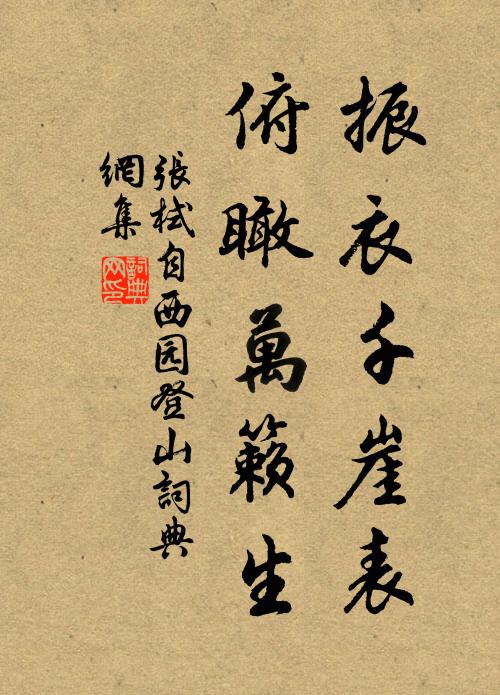 振衣千崖表
俯瞰萬籟生
張栻自西园登山詞典
網集
詞典
网印